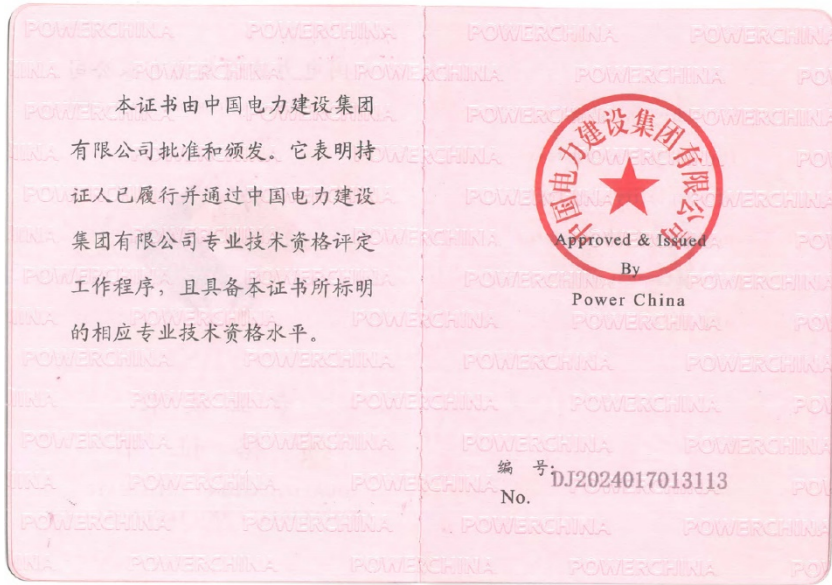 本证书由中国电力建设集团
有限公司批准和颁发。它表明持
证人已履行并通过中国电力建设
集团有限公司专业技术资格评定
工作程序，且具备本证书所标明
的相应专业技术资格水平。
中国电力建设集团有限公司
Approved & Issued
By
Power China
编 号:DJ2024017013113
No.
POWERCHINA